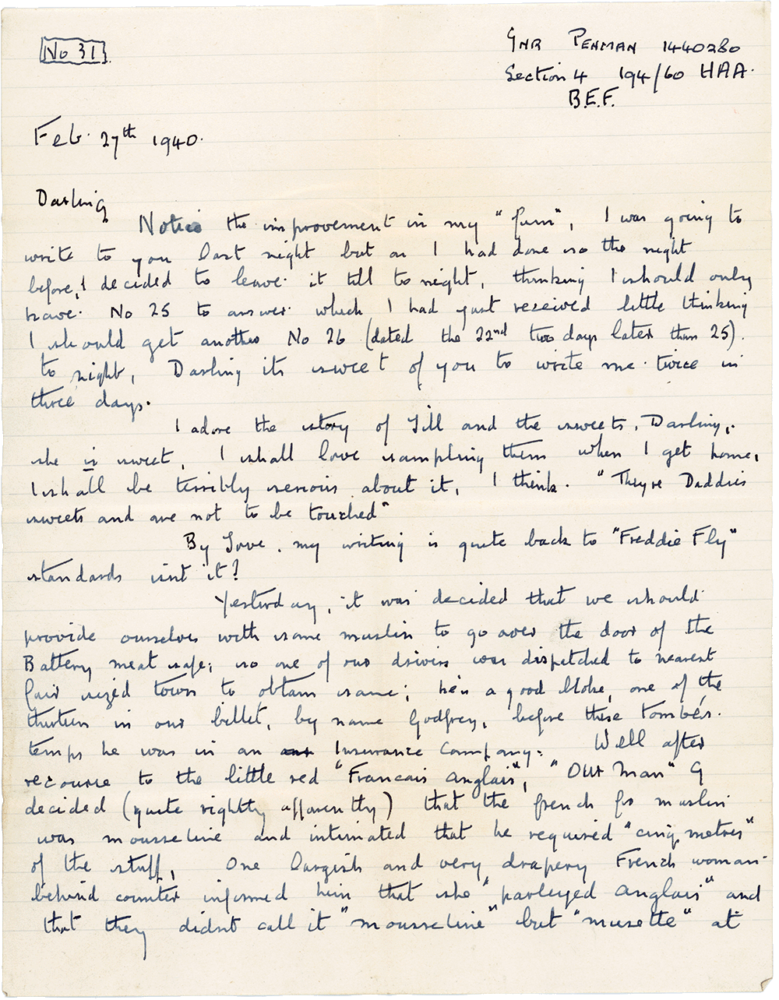 No 31
GNR PENMAN 1440280
Section 4 194/60 HAA.
B.E.F.
Feb. 27th 1940.
Darling
Notice the improvement in my "fun", I was going to
write to you last night but as I had done so the night
before, I decided to leave it till to night, thinking I should only
have No 25 to answer which I had just received little thinking
I should get another No 26 (dated the 22nd two days later than 25).
to night, Darling its sweet of you to write me twice in
three days.
I adore the story of Jill and the sweets, Darling,
she is sweet, I shall love sampling them when I get home,
I shall be terribly serious about it, I think. "Theyre Daddies
sweets and are not to be touched"
By Jove, my writing is quite back to "Freddie Fly"
standards isnt it?
Yesterday, it was decided that we should
provide ourselves with some muslin to go over the door of the
Battery meat safe; so one of our drivers was dispetched to nearest
fair sized town to obtain same; he's a good bloke, one of the
thirteen in our billet, by name Godfrey, before these
temps he was in an Insurance Company. Well after
recourse to the little red "Francais Anglais", "OUR Man" G
decided (quite rightly apparently) that the french for muslin
was mousseline and intimated that he required "cinq metres"
of the stuff, One largish and very drapery French woman
behind counter informed him that she "parleyed anglais" and
that they didnt call it "mousseline" but "musette" at